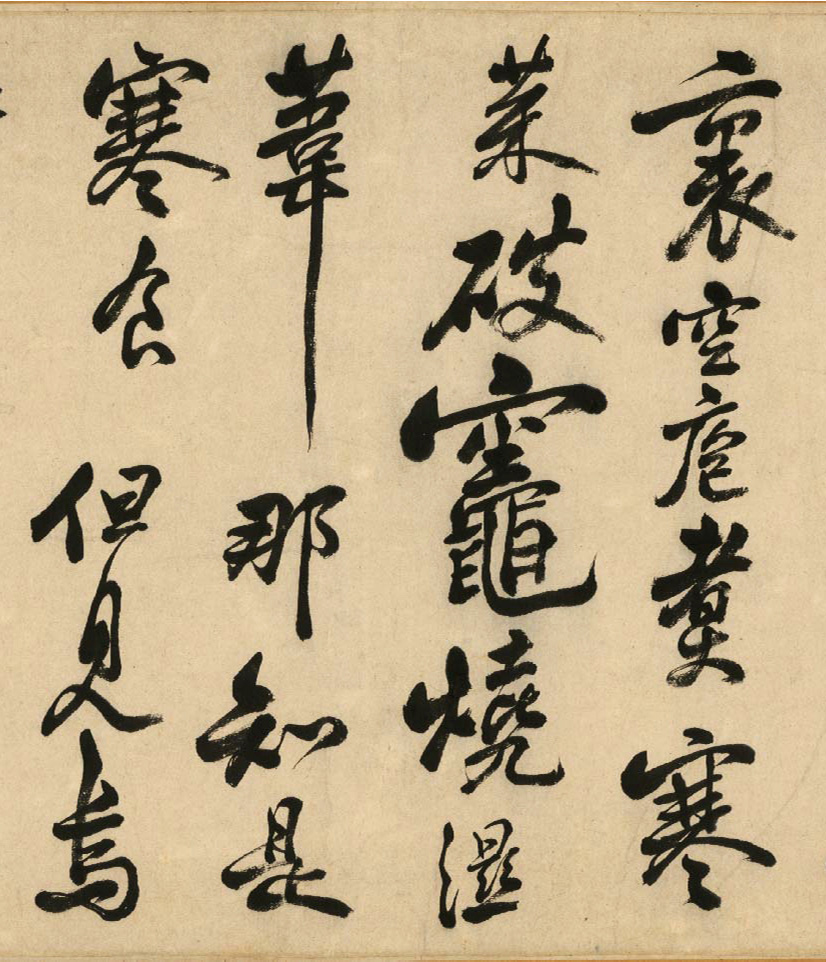 裏空庖煑寒
菜破竈燒濕
葦那知是
寒食但見烏